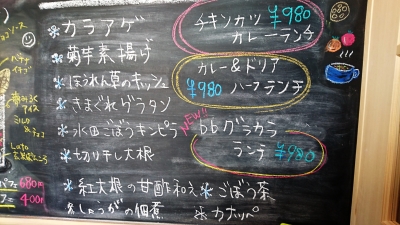 *カラアゲ
*菊芋素揚げ
*ほうれん草のキッシュ
*きまぐれグラタン
*氷田ごぼうキンピラ
*切り干し大根
*紅大根の甘酢和え *ごぼう茶
*しょうがの佃煮 *カナッペ
チキンカツ ¥980
カレーランチ
カレー&ドリア
¥980 ハーフランチ
NEW!!
bbグラカラ
ランチ ¥980
ソース
アイス
ミルク
680円
400円